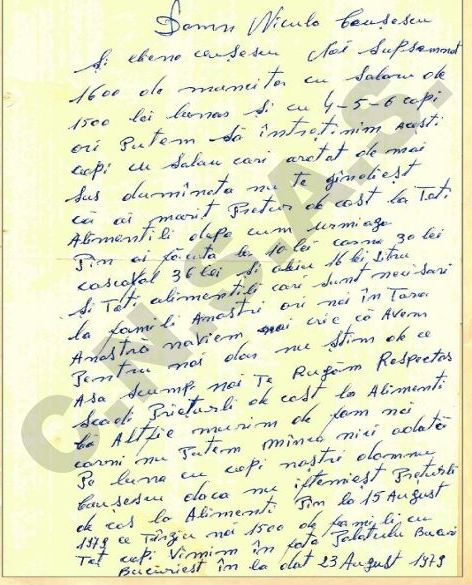 Domn Niculo Caușescu
Și elena causescu Noi supsamnat
1600 de muncitor cu salaru de
1500 lei lunar și cu 4-5-6 copi
ori Putem să întreținim acesti
copi cu salau cari aratat de mai
sus dumineta nu te gîndiest
că ai marit Prețur de cost la Tati
Alimentili dupo cum urmiaza
Pin ai făcuta la 10 lei carne 30 lei
cascaval 36 lei și uliu 16 lei Litru
și Tati alimentili cari sunt necisari
la famili Amastri ori noi în Tara
Amastră naviem nici cric că Avem
Pentru noi dar nu știm de ce
Asa scump noi Te Rugăm Respectos
scadi Prieturli de cost la Alimenti
că Altfie murim de fom noi
carni nu Putem mînca nici odată
Pe luna cu copi nostri domnu
Caușescu daca nu iftemiest Preturili
de cos la Alimenti Pin la 15 August
1979 ce Tărziu noi 1500 de famili cu
Tot copi Vinim în fata Palatului Bucuri
Bucuriest în la dat 23 August 1979
C.N.S.A.S.